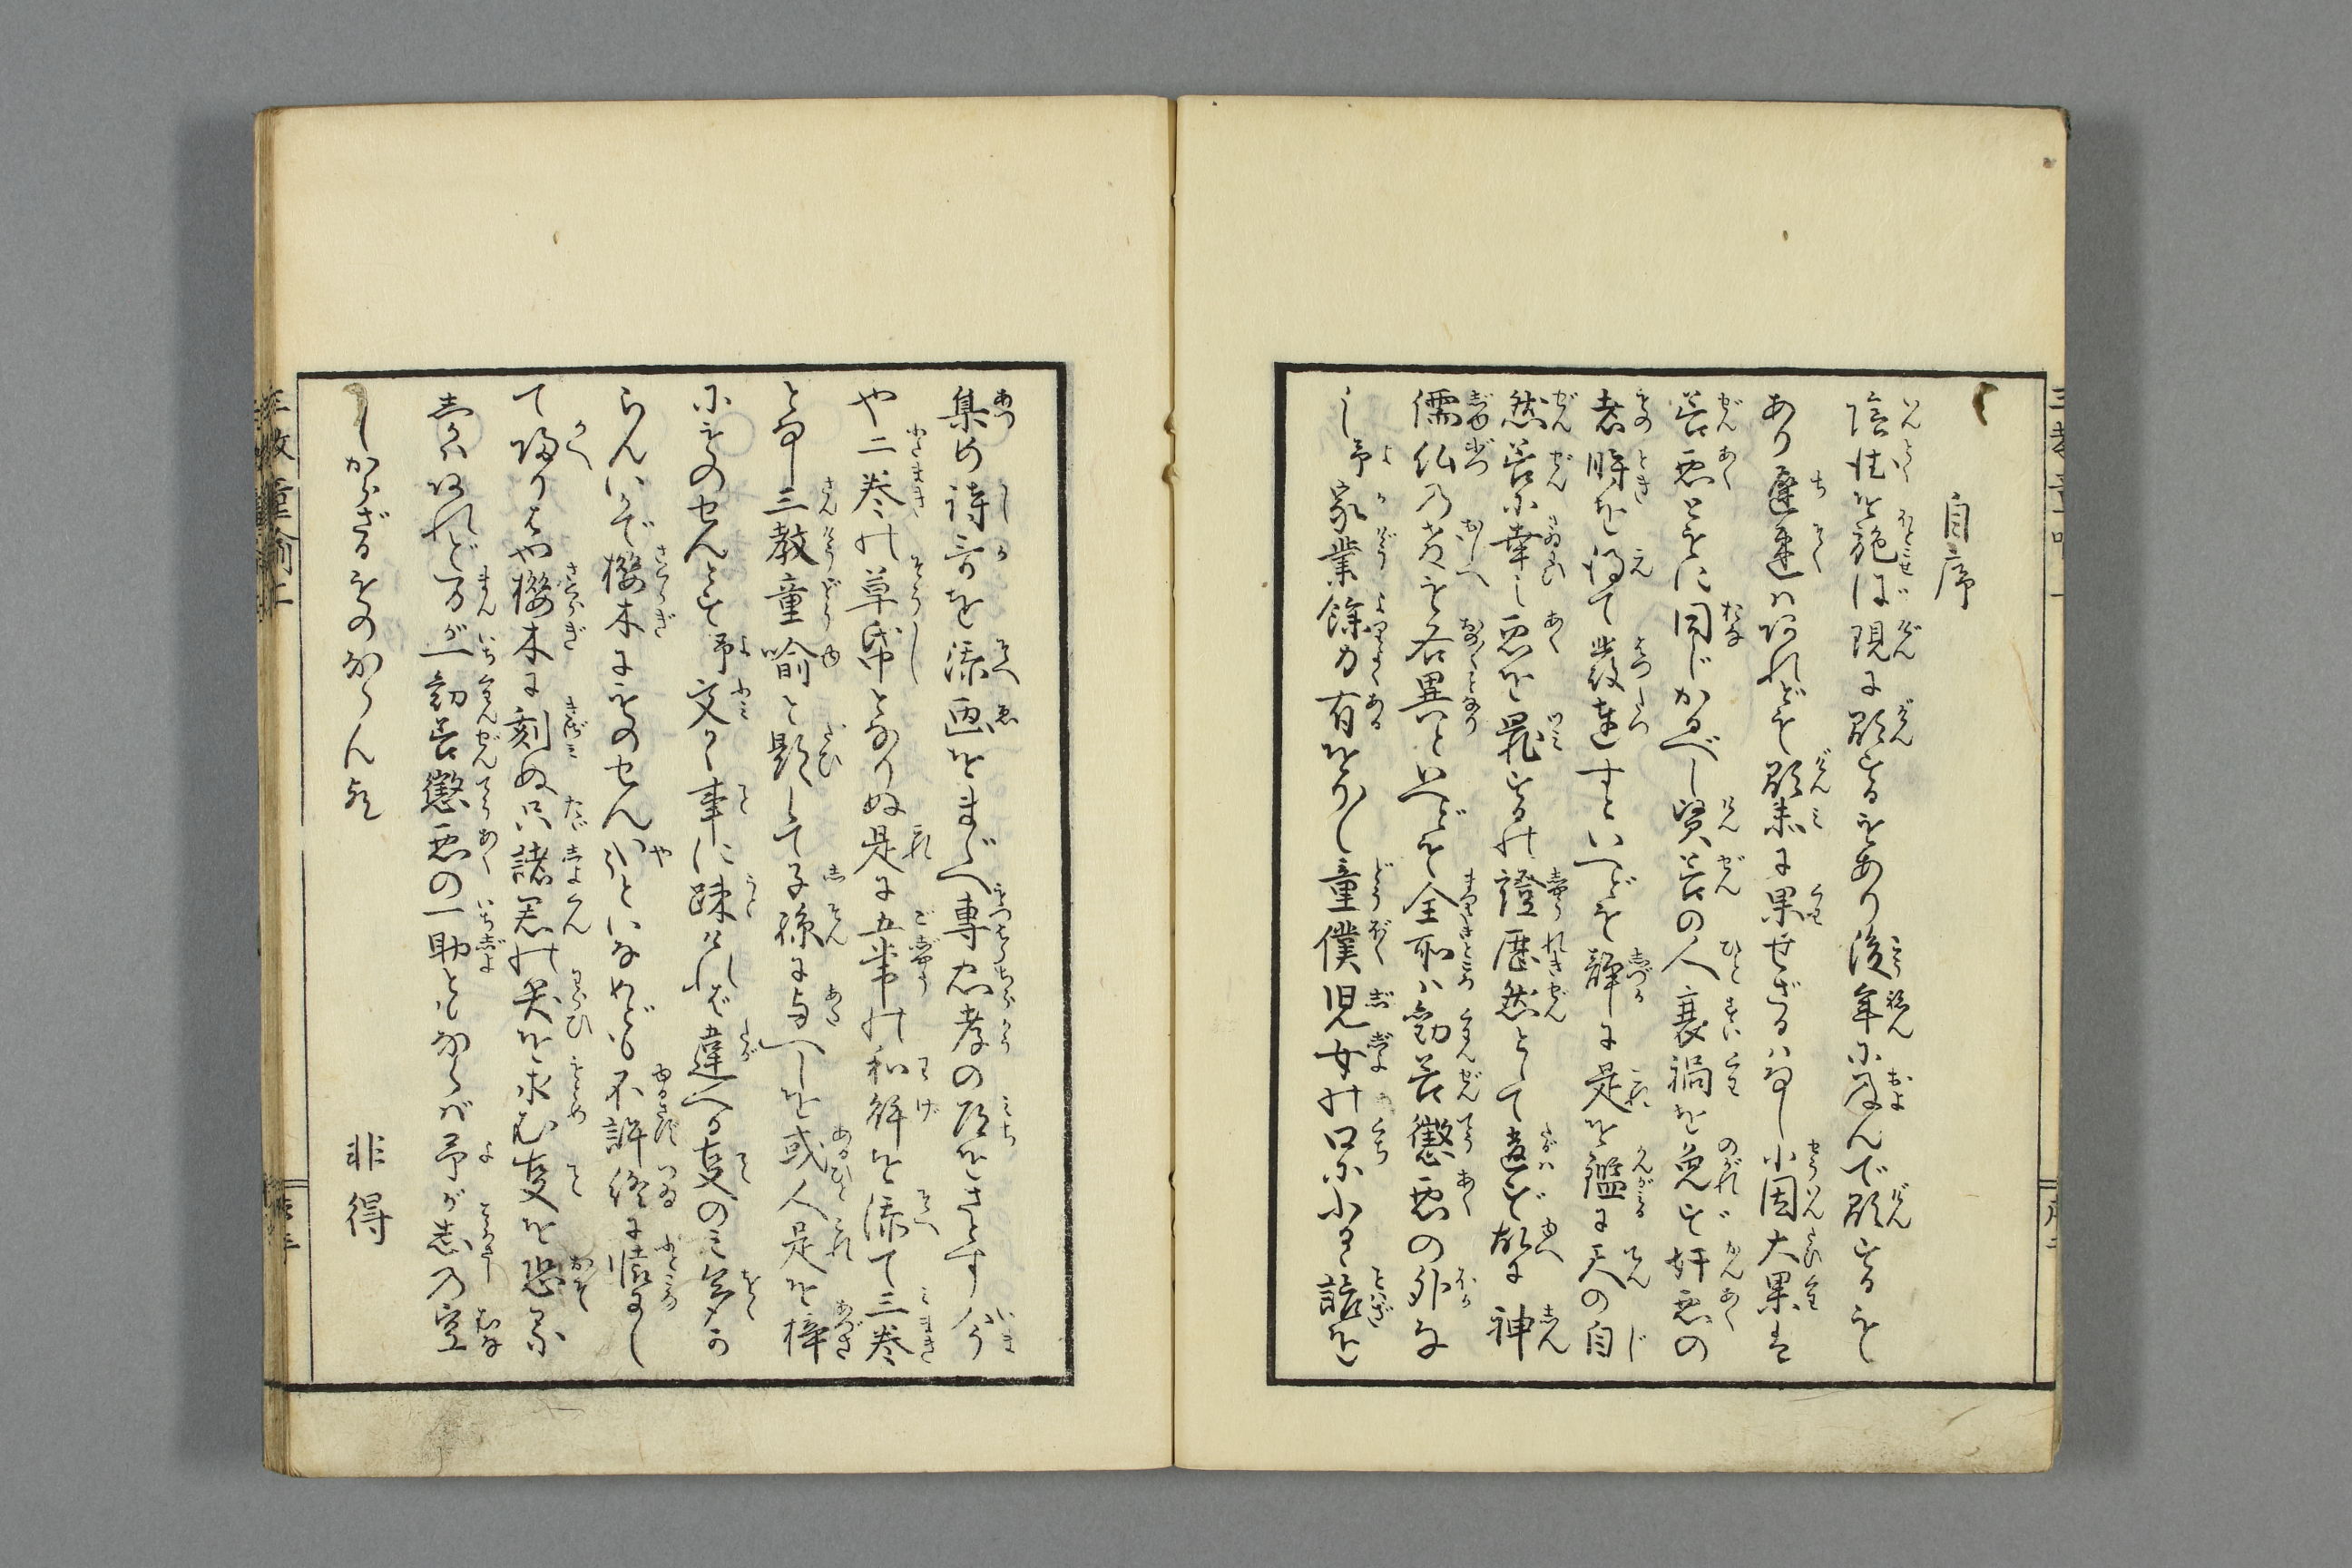 自序
陰徳を施ほ現に顕するもあり後年に及んで顕するも
あり遅速ハあれども顕未に果せざるハなし小因大果は
善悪ともに同じかるべし賢善の人衰禍を免も奸悪の
者時を得て發達すといへども静に是を鑑に天の自
然善に幸し悪を罪するの證歴然として違ず故に神
儒仏の教も名異といへども全所ハ勧善懲悪の外な
し予家業餘力有をりし童僕児女の口に小き諺を
集め詩哥を添画をまじへ専忠孝の道をさとす今
や二巻の草帋となりぬ是に五常の和解を添て三巻
となし三教童喩と題して子孫に与へしを或人是を梓
にものせんとす予文く事に疎けれバ違へる事のミ多か
らんいかで櫻木にものせんやといなめども不許終に懐し
て帰りはや櫻木に刻ぬ只諸君の笑を求む事を恐る
しかハあれど万が一勧善懲悪の一助ともならバ予が志の空
しからざるものならん歟
非得
三教童喩上